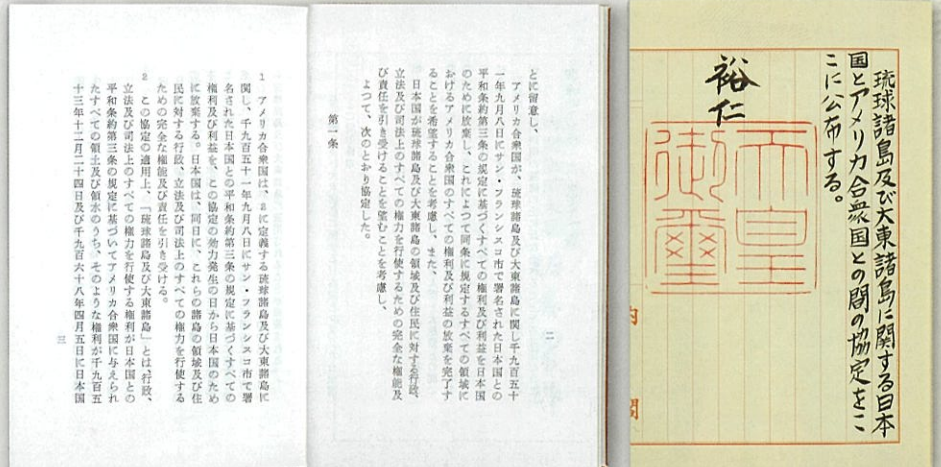 琉球諸島及び大東諸島に関する日本
国とアメリカ合衆国との間の協定をこ
こに公布する。
裕仁
天皇
御璽
内閣
とに留意し、
アメリカ合衆国が、琉球諸島及び大東諸島に関し千九百五十
一年九月八日にサン・フランシスコ市で署名された日本国との
平和条約第三条の規定に基づくすべての権利及び利益を日本国
のために放棄し、これによつて同条に規定するすべての領域に
おけるアメリカ合衆国のすべての権利及び利益の放棄を完了す
ることを希望することを考慮し、また、
日本国が琉球諸島及び大東諸島の領域及び住民に対する行政、
立法及び司法上のすべての権力を行使するための完全な権能及
び責任を引き受けることを望むことを考慮し、
よつて、次のとおり協定した。
第一条
二
1 アメリカ合衆国は、2に定義する琉球諸島及び大東諸島に
関し、千九百五十一年九月八日にサン・フランシスコ市で署
名された日本国との平和条約第三条の規定に基づくすべての
権利及び利益を、この協定の効力発生の日から日本国のため
に放棄する。日本国は、同日に、これらの諸島の領域及び住
民に対する行政、立法及び司法上のすべての権力を行使する
ための完全な権能及び責任を引き受ける。
2 この協定の適用上、「琉球諸島及び大東諸島」とは、行政、
立法及び司法上のすべての権力を行使する権利が日本国との
平和条約第三条の規定に基づいてアメリカ合衆国に与えられ
たすべての領土及び領水のうち、そのような権利が千九百五
十三年十二月二十四日及び千九百六十八年四月五日に日本国
三